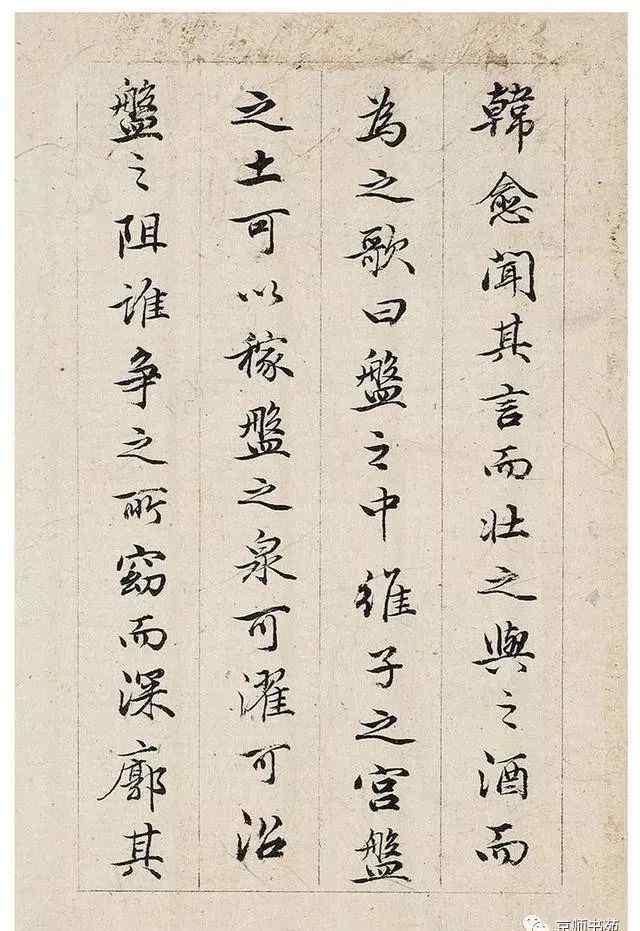 韓愈聞其言而壯之與之酒而
為之歌曰盤之中維子之宮盤
之土可以稼盤之泉可濯可沿
盤之阻誰争之所窈而深廓其
京师书苑